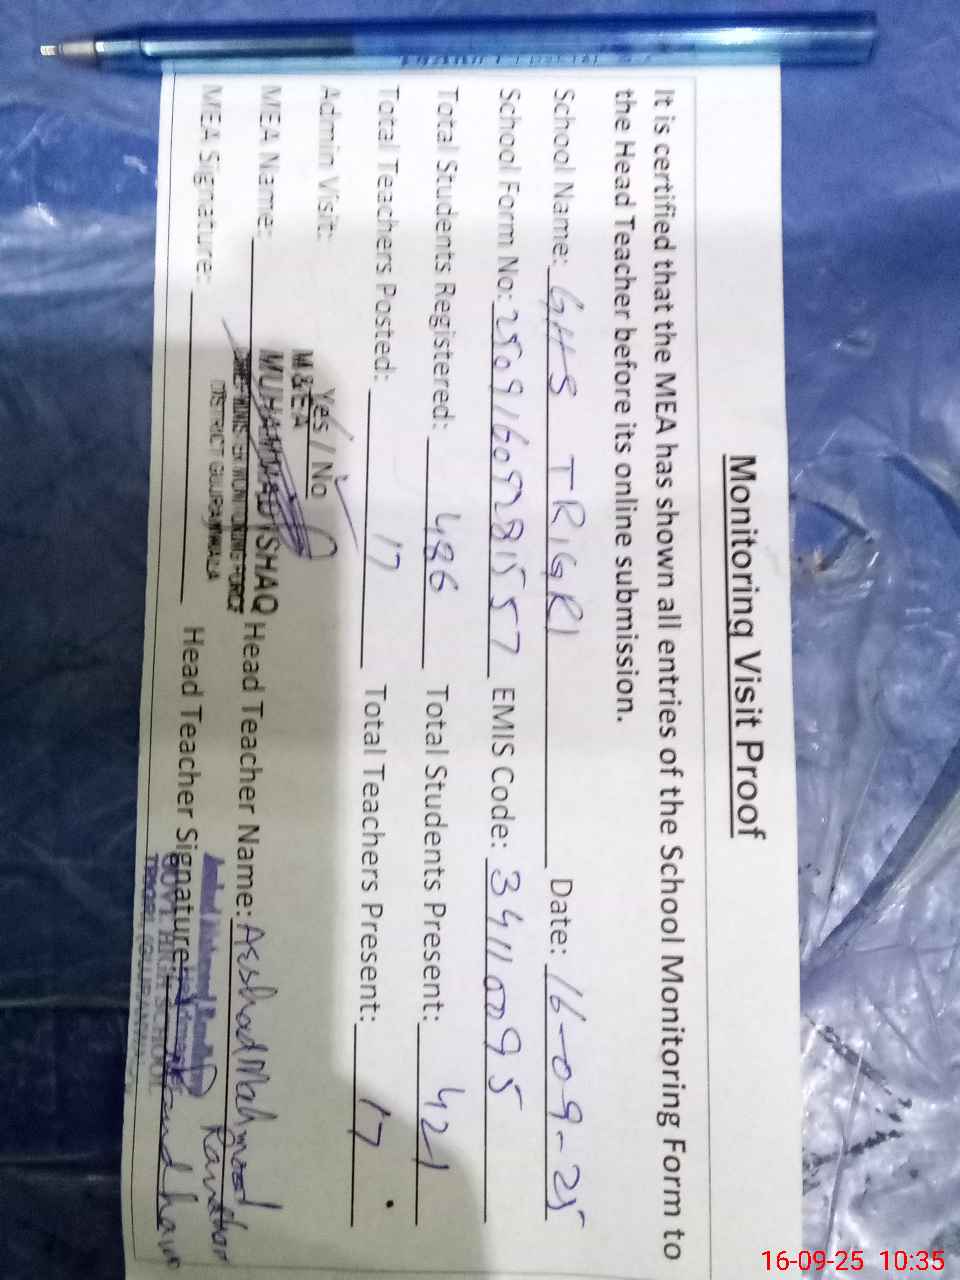 Monitoring Visit Proof
It is certified that the MEA has shown all entries of the School Monitoring Form to
the Head Teacher before its online submission.
School Name: GHS TRIGRI Date: 16-09-25
School Form No: 25091609281557 EMIS Code: 34110095
Total Students Registered: 486 Total Students Present: 421
Total Teachers Posted: 17 Total Teachers Present: 17
Admin Visit: Yes / No
M&EA
MEA Name: MUHAMMAD ISHAQ Head Teacher Name: Arshad Mahmood
DISTRICT GUJRANWALA
MEA Signature: Head Teacher Signature:
GOVT. HIGH SCHOOL
16-09-25 10:35